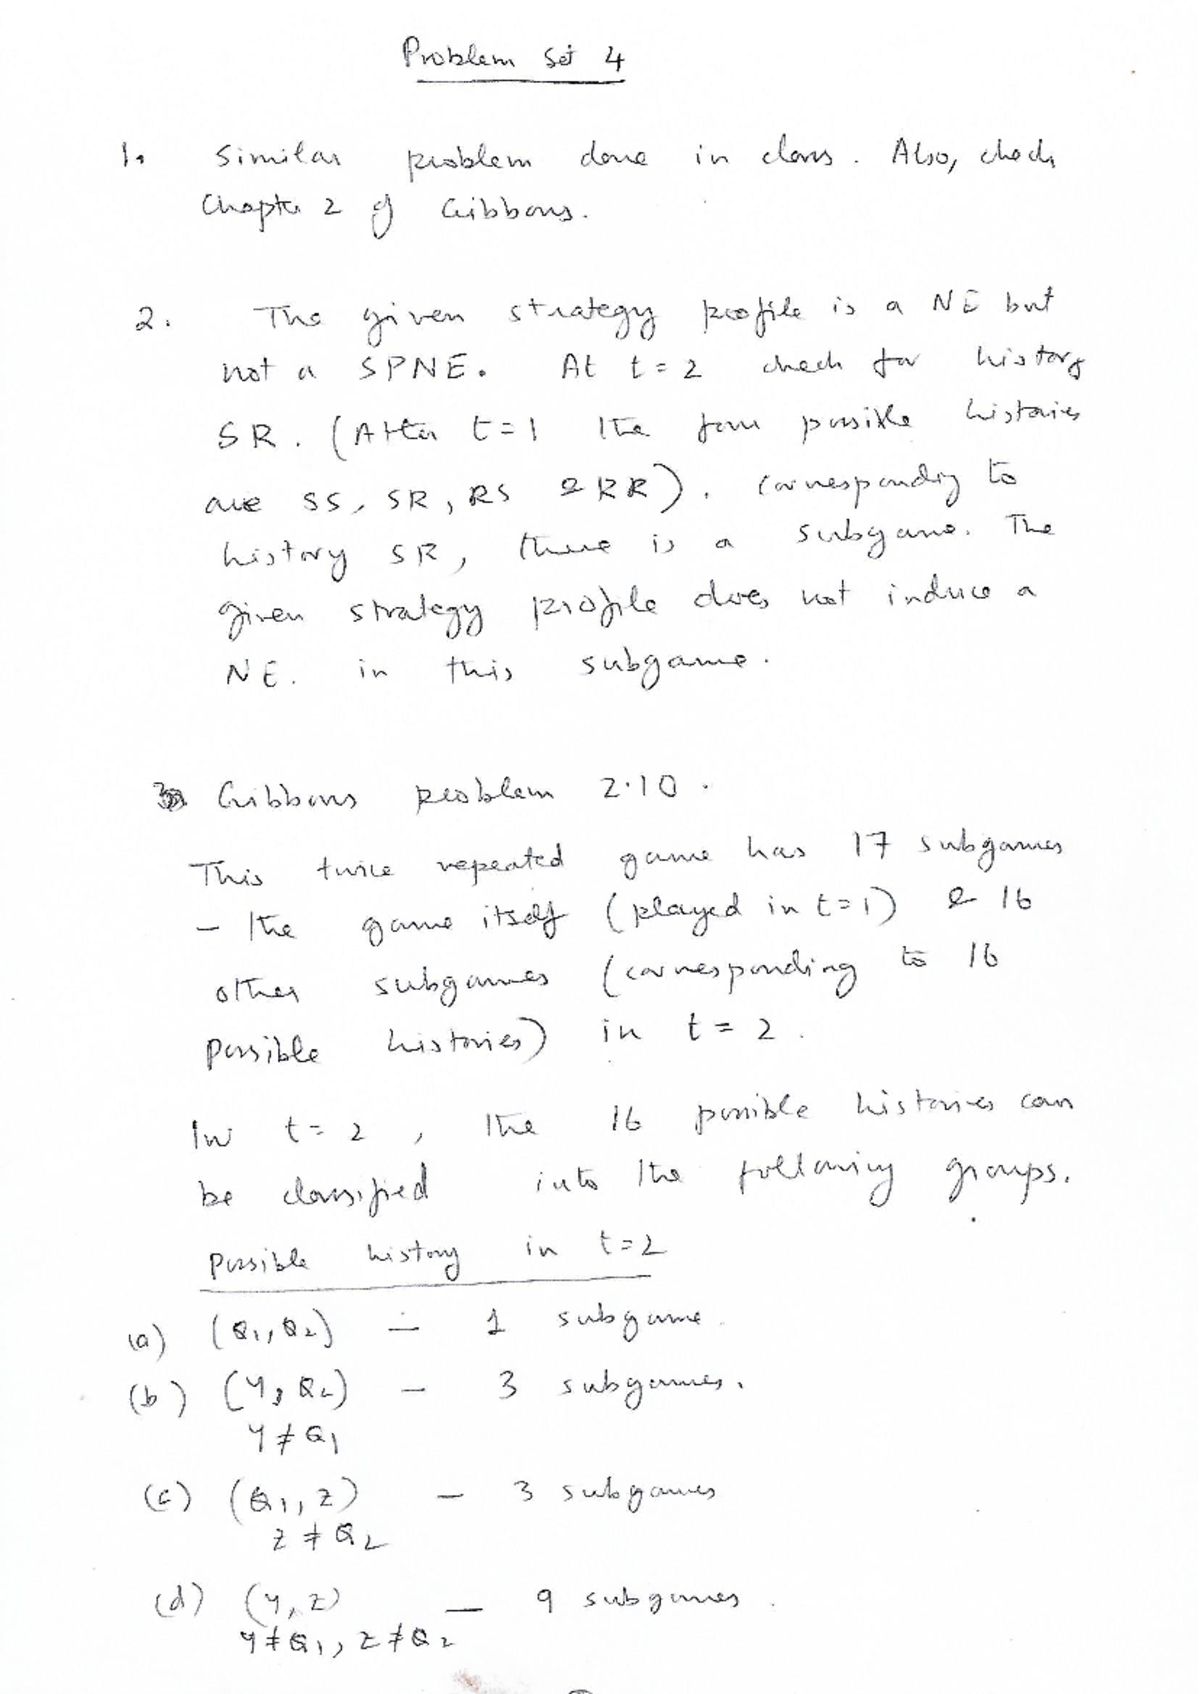 Problem Set 4
1. Similar problem done in class. Also, check
Chapter 2 of Gibbons.
2. The given strategy profile is a NE but
not a SPNE. At t=2 check for history
SR. (After t=1 the four possible histories
are SS, SR, RS & RR). Corresponding to
history SR, there is a subgame. The
given strategy profile does not induce a
NE. in this subgame.
3 Gibbons problem 2.10.
This twice repeated game has 17 subgames
- the game itself (played in t=1) & 16
other subgames (corresponding to 16
possible histories) in t=2.
In t=2, the 16 possible histories can
be classified into the following groups.
Possible history in t=2
(a) (Q1, Q2) - 1 subgame.
(b) (y, Q2) - 3 subgames.
y ≠ Q1
(c) (Q1, z) - 3 subgames
z ≠ Q2
(d) (y, z) - 9 subgames.
y ≠ Q1, z ≠ Q2